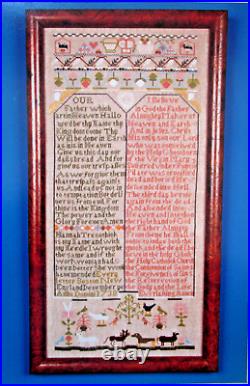 OUR
Father Which
art in Heaven Hallo
wed be thy Name thy
Kingdom come Thy
Will be done in Earth
as it is in Heaven
Give us this day our
daily bread And for
give us our trespases
As we forgive them
that trespass against
us And lead us not in
to temptation But deli
ver us from evil For
thine is the Kingdom
The power and the
Glory Forever Amen
Hannah Trecothick
is my Name and with
my Needle I wrought
the same and if the
work
had
been better
have mended Every
letter Boston In New
England December
Anno Domini 1738
I Believe
in God the Father
Almighty Maker of
Heaven and Earth
And in Jesus Christ
his only son our Lord
who was conceived
by the Holy Ghost born
of the Virgin Mary
suffered under Pontius
Pilate was crucified
dead and buried He
descended into Hell
The third day he rose
again from the dead
And ascended into
Heaven and sitteth on
the right hand of God
the Father Almighty
From thence he shall
come to judge both the
quick and the dead I be
lieve in the Holy Ghost
the Holy Catholick Church
the Communion of Saints
the Forgiveness of Sins
the Resurrection of the
Body and the Life
Everlasting Amen